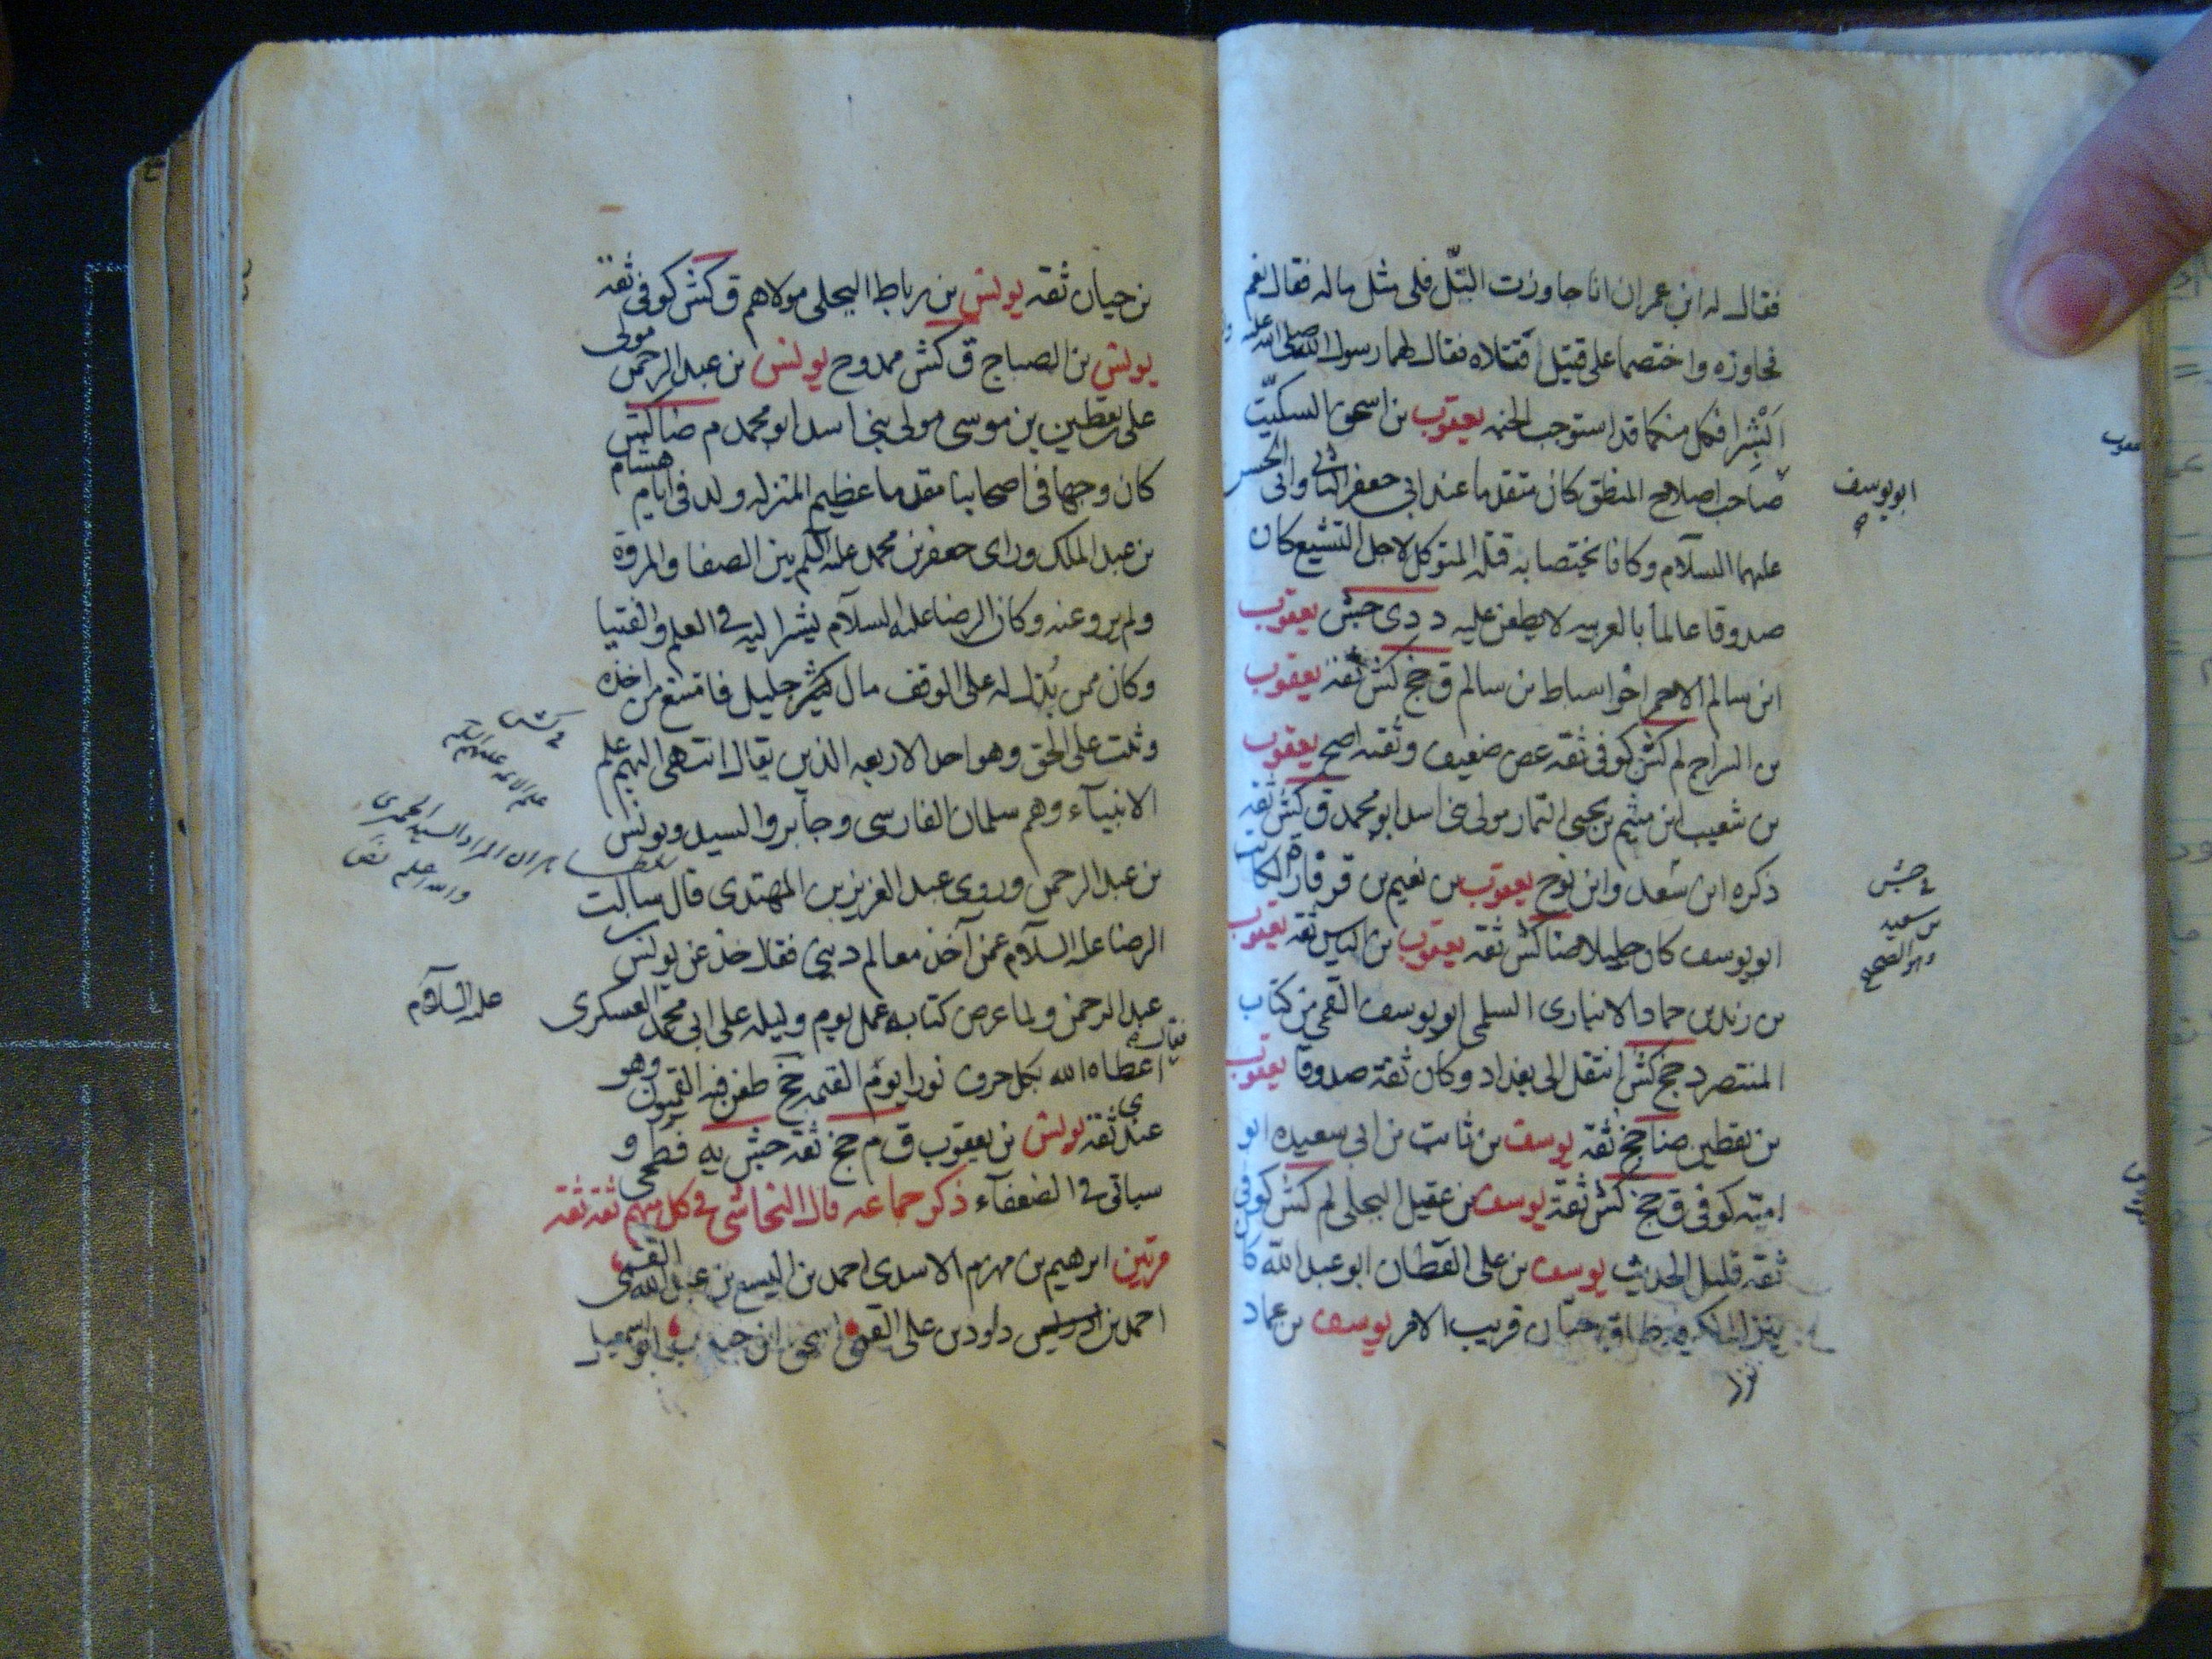 فقال له ابن عمران انا جاوزت التل فلى مثل ماله فقال نعم
فجاوزه واختصما على قتيل قتلاه فقال لهما رسول الله صلى الله عليه
اَبْشِرا فكل منكما قد استوجب الجنه يعقوب بن اسحق السكّيت
ابو يوسف
صاحب اصلاح المنطق كان متقدما عند ابى جعفر الثانى وابى الحسن
عليهما السلام وكانا يختصا به قتله المتوكل لاجل التشيع كان
صدوقا عالما بالعربيه لا يطعن عليه د دى جش يعقوب
ابن سالم الاحمر اخو اسباط بن سالم ق جخ كش ثقة يعقوب
بن السراج لم كش كوفى ثقة غض ضعيف وثقته اصح يعقوب
بن شعيب ابن ميثم بن يحيى التمار مولى بنى اسد ابو محمد ق كش ثقه
ذكره ابن سعد وابن نوح يعقوب بن نعيم بن قرقارة الكاتب
فى جش
بن سعيد
وهو الصحيح
ابو يوسف كان جليلا ضا كش ثقه يعقوب بن الياس ثقة يعقوب
بن زيد بن حماد الانبارى السلمى ابو يوسف القمى من كتاب
المنتصر د جخ كش انتقل الى بغداد وكان ثقة صدوقا يعقوب
بن يقطين ضا جخ ثقة يوسف بن ثابت بن ابى سعيده ابو
اميّه كوفى ق جخ كش ثقة يوسف بن عقيل البجلى لم كش كوفى
ثقه قليل الحديث يوسف بن على القطان ابو عبد الله كان
ينزل طاق حيان قريب الامر يوسف بن عماد
بن حيان ثقه يونس بن رباط البجلى مولاهم ق كش كوفى ثقة
يونس بن الصباح ق كش ممدوح يونس بن عبد الرحمن مولى
على بن يقطين بن موسى مولى بنى اسد ابو محمد م ضا كش
كان وجها فى اصحابنا مقدما عظيم المنزله ولد فى ايام هشام
بن عبد الملك وراى جعفر بن محمد عليه السلم بين الصفا والمروة
ولم يرو عنه وكان الرضا عليه السلام يشير اليه فى العلم والفتيا
وكان ممن بُذل له على الوقف مال كثير جليل فامتنع من اخذه
وثبت على الحق وهو احد الاربعه الذين يقال انتهى اليهم علم
فى كش
علم الائمه عليهم السلم
الانبياء وهم سلمان الفارسى وجابر والسيد ويونس
المراد السيد الحميرى
والله اعلم
بن عبد الرحمن وروى عبد العزيز بن المهتدى قال سالت
الرضا عليه السلام عمن آخذ معالم دينى فقال خذ عن يونس بن
عبد الرحمن ولما عرض كتابه عمل يوم وليله على ابى محمد العسكرى
عليه السلام
فقال
اعطاه الله بكل حرف نورا يوم القيمه جخ طعن فيه القميون وهو
عندى ثقة يونس بن يعقوب ق م جخ ثقة جش يه فطحى و
سياتى فى الضعفآء ذكر جماعه قال النجاشى فى كل منهم ثقة ثقة
مرتين ابرهيم بن مهزم الاسدى احمد بن اليسع بن عبد الله القمى
احمد بن ادريس داود بن على القمى اسحق ابن جندب ابو اسمعيل